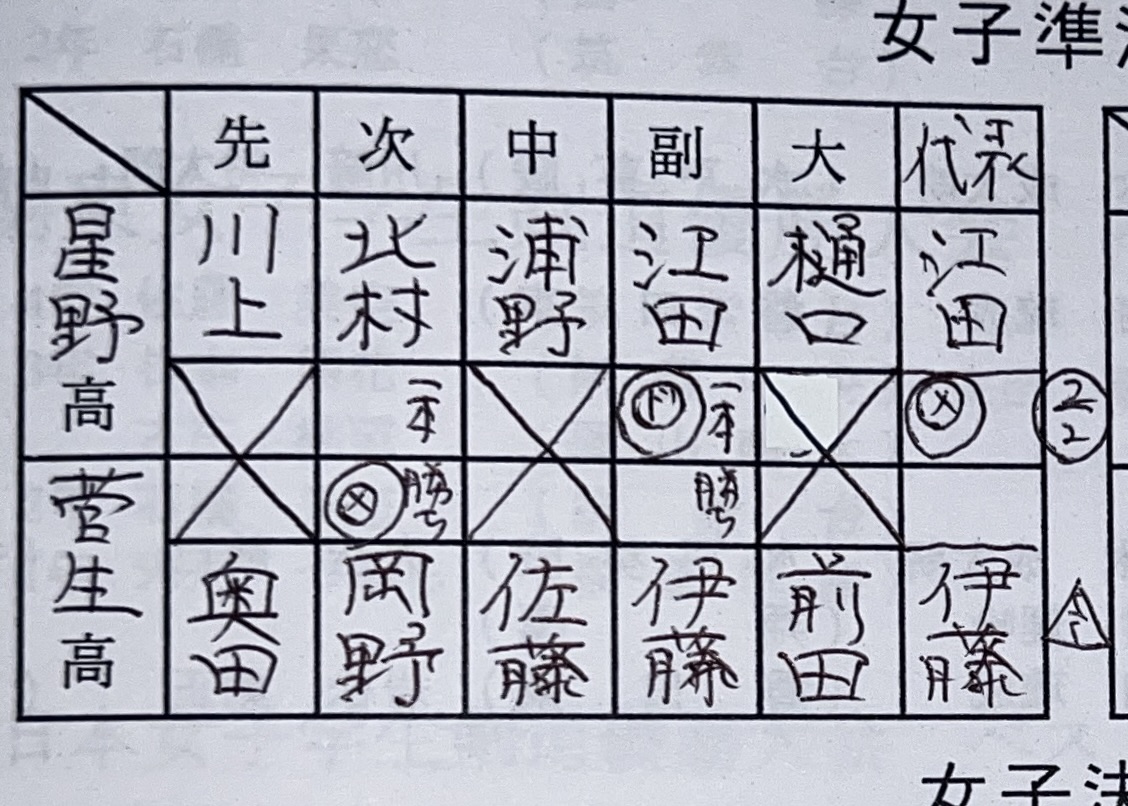 女子準
先 次 中 副 大 代表
星野高 川上 北村 浦野 江田 樋口 江田
一本 ド 一本 メ 2 2
メ 勝ち 勝ち
菅生高 奥田 岡野 佐藤 伊藤 前田 伊藤 1 1
女子決